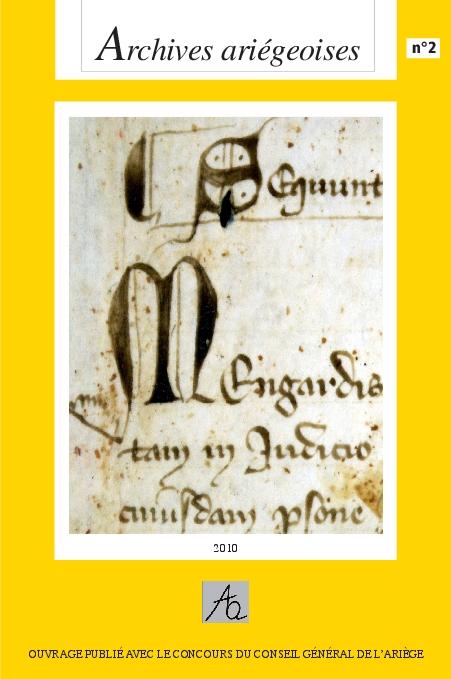 Archives ariégeoises
n°2
Sequunt
Mengardis
tam in Judicio
cuiusdam psone
2010
Aa
OUVRAGE PUBLIÉ AVEC LE CONCOURS DU CONSEIL GÉNÉRAL DE L'ARIÈGE